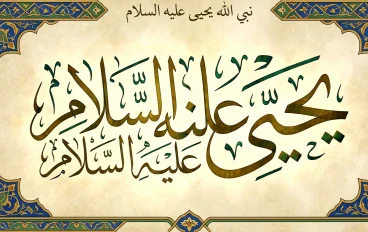 نبي الله يحيى عليه السلام
يَحيَّى علنه السَّلَامِ
عَلَيْهِ السَّلَامُ